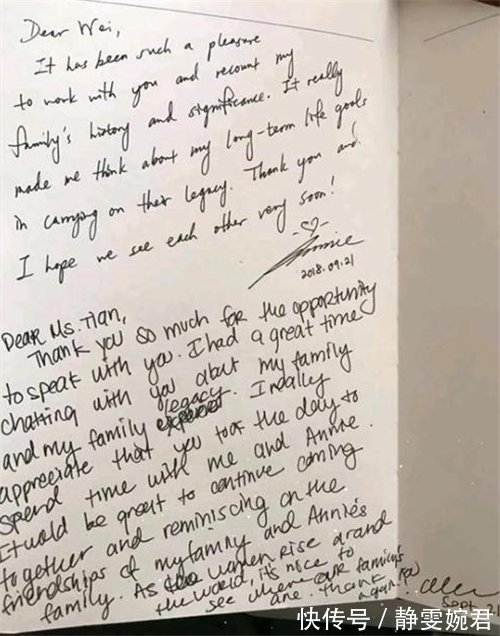 Dear Wei,
It has been such a pleasure
to work with you and recount my
family's history and significance. It really
made me think about my long-term life goals
in carrying on their legacy. Thank you and
I hope we see each other very soon!
Annie
2018.09.21
Dear Ms. Tian,
Thank you so much for the opportunity
to speak with you. I had a great time
chatting with you about my family
and my family legacy. I really
appreciate that you took the day to
spend time with me and Annie.
It would be great to continue coming
together and reminiscing on the
friendships of my family and Annie's
family. As women rise around
the world, it's nice to
see where our family's
are. Thank you
again!
Sept 21
快传号/静雯婉君